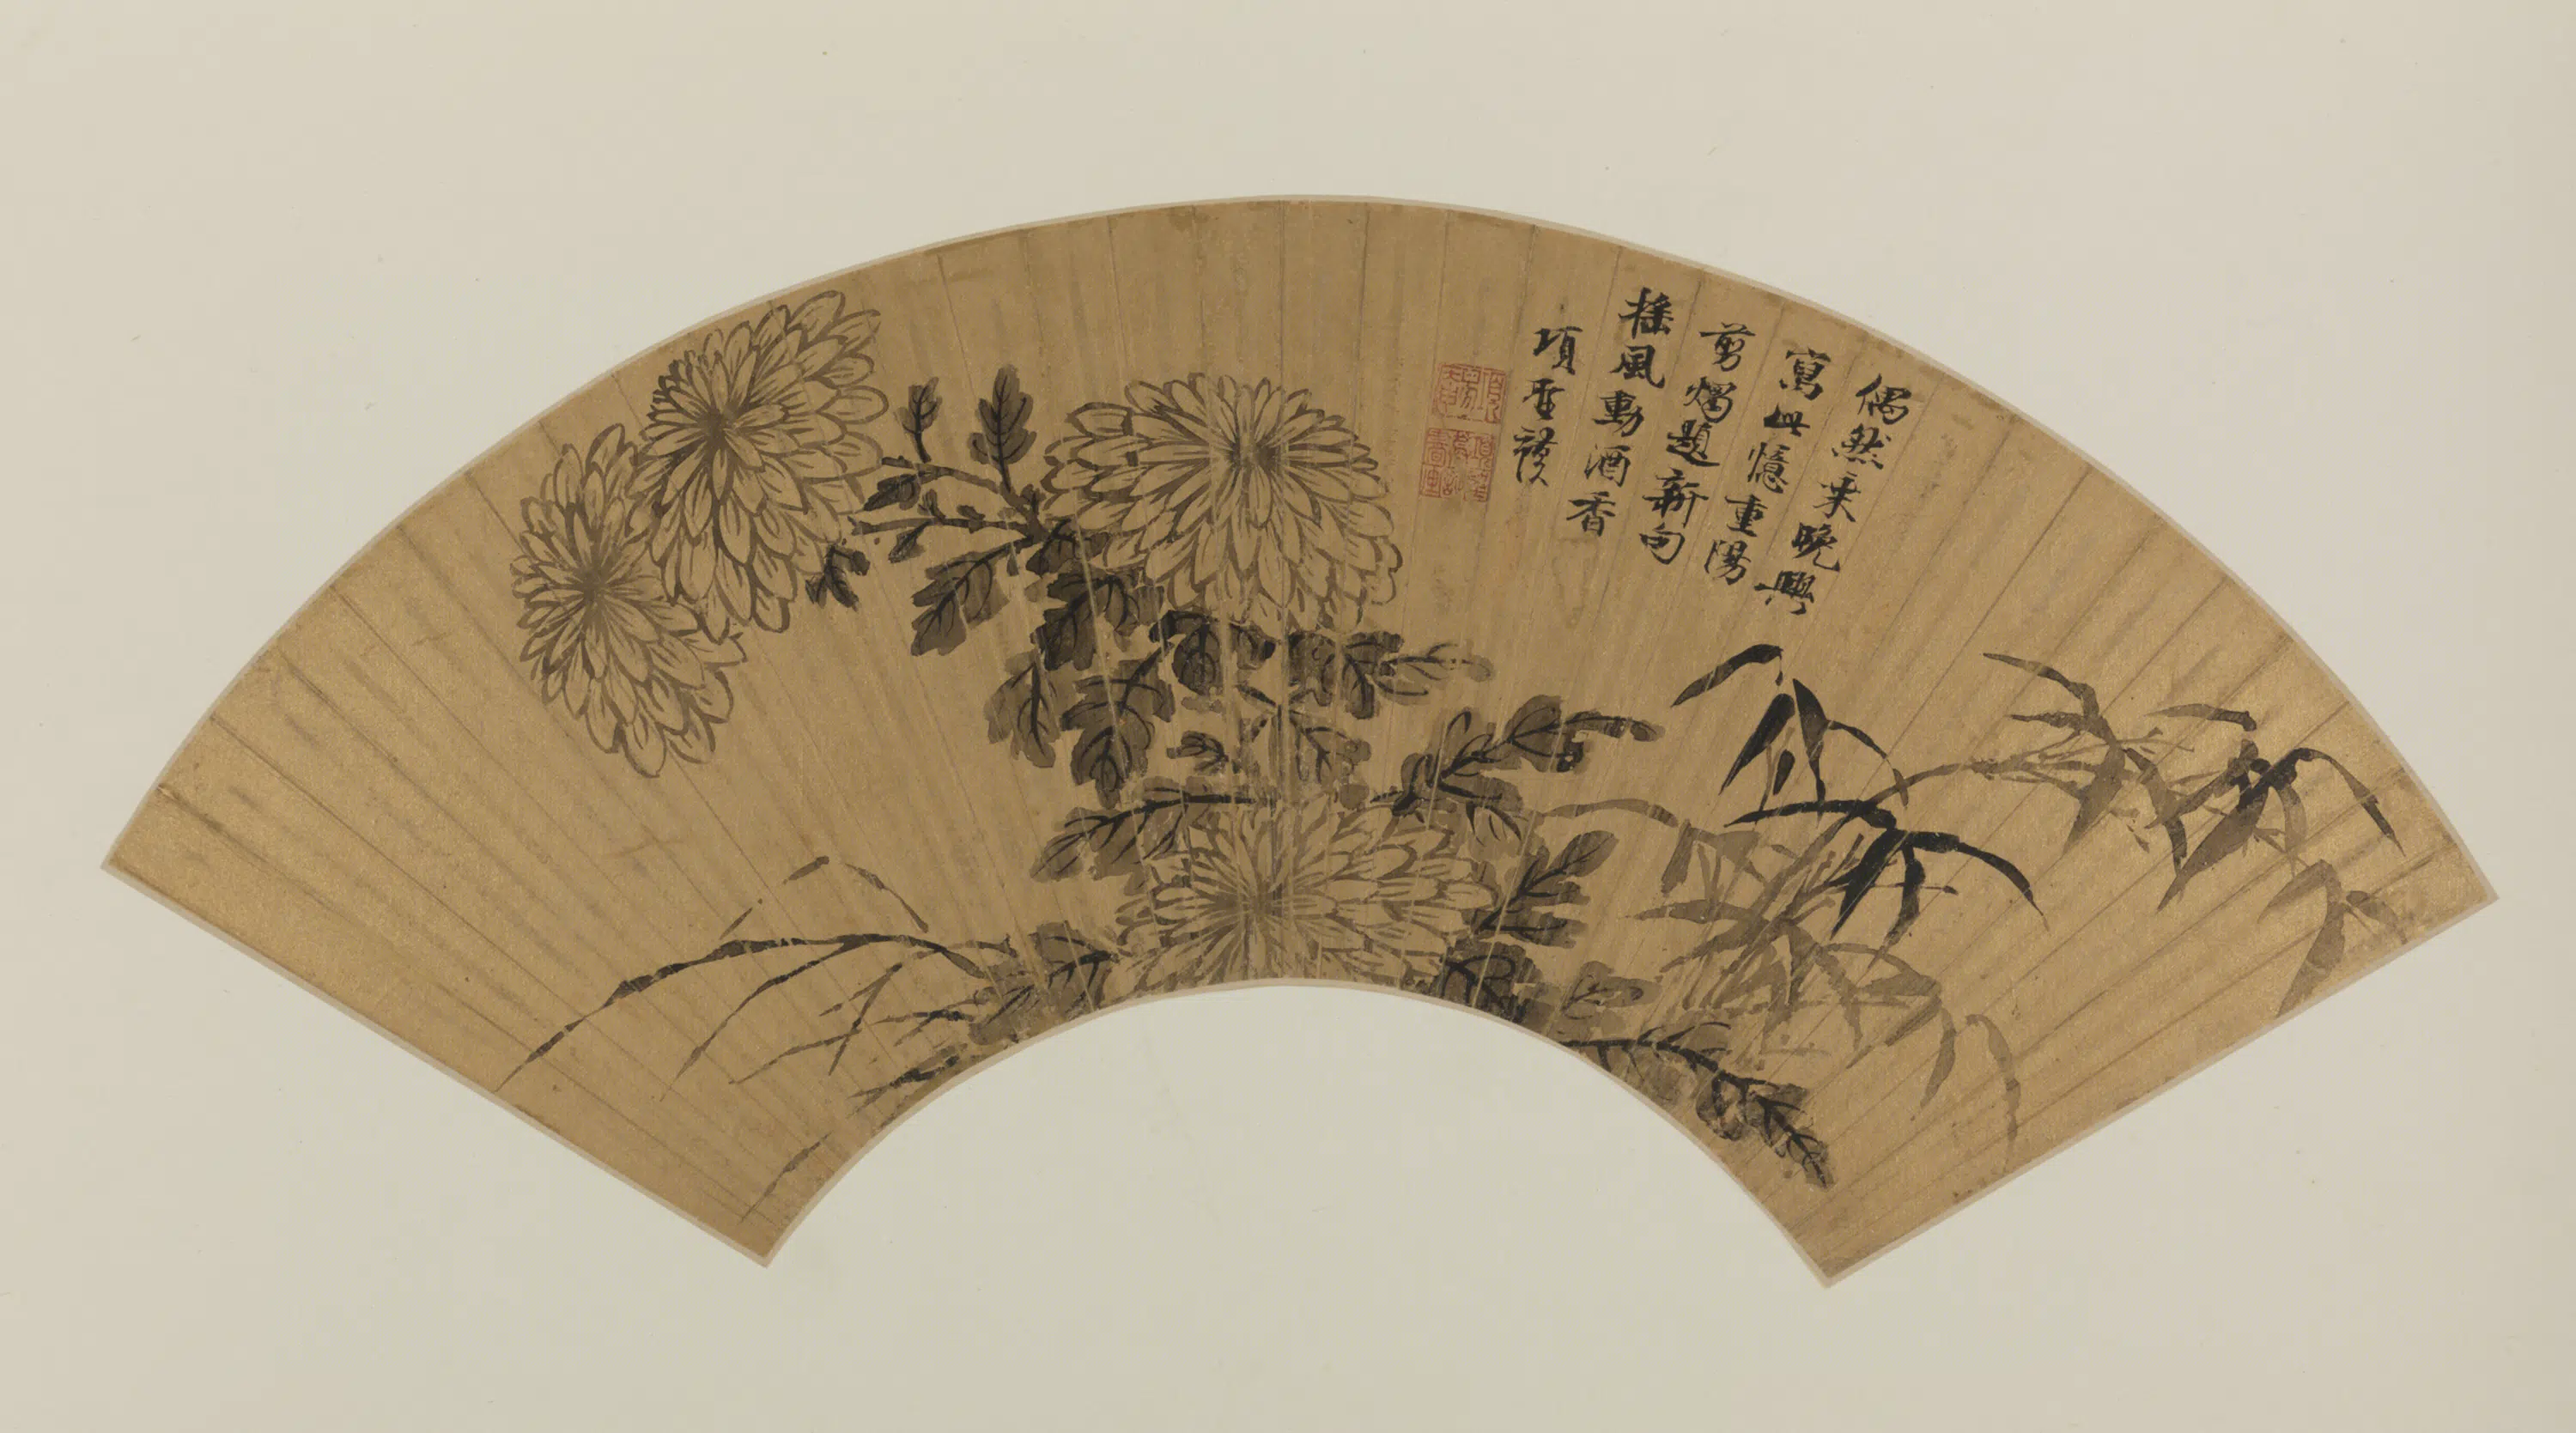 偶然乘晚興
寫此憶重陽
剪燭題新句
搖風動酒香
項聖謨